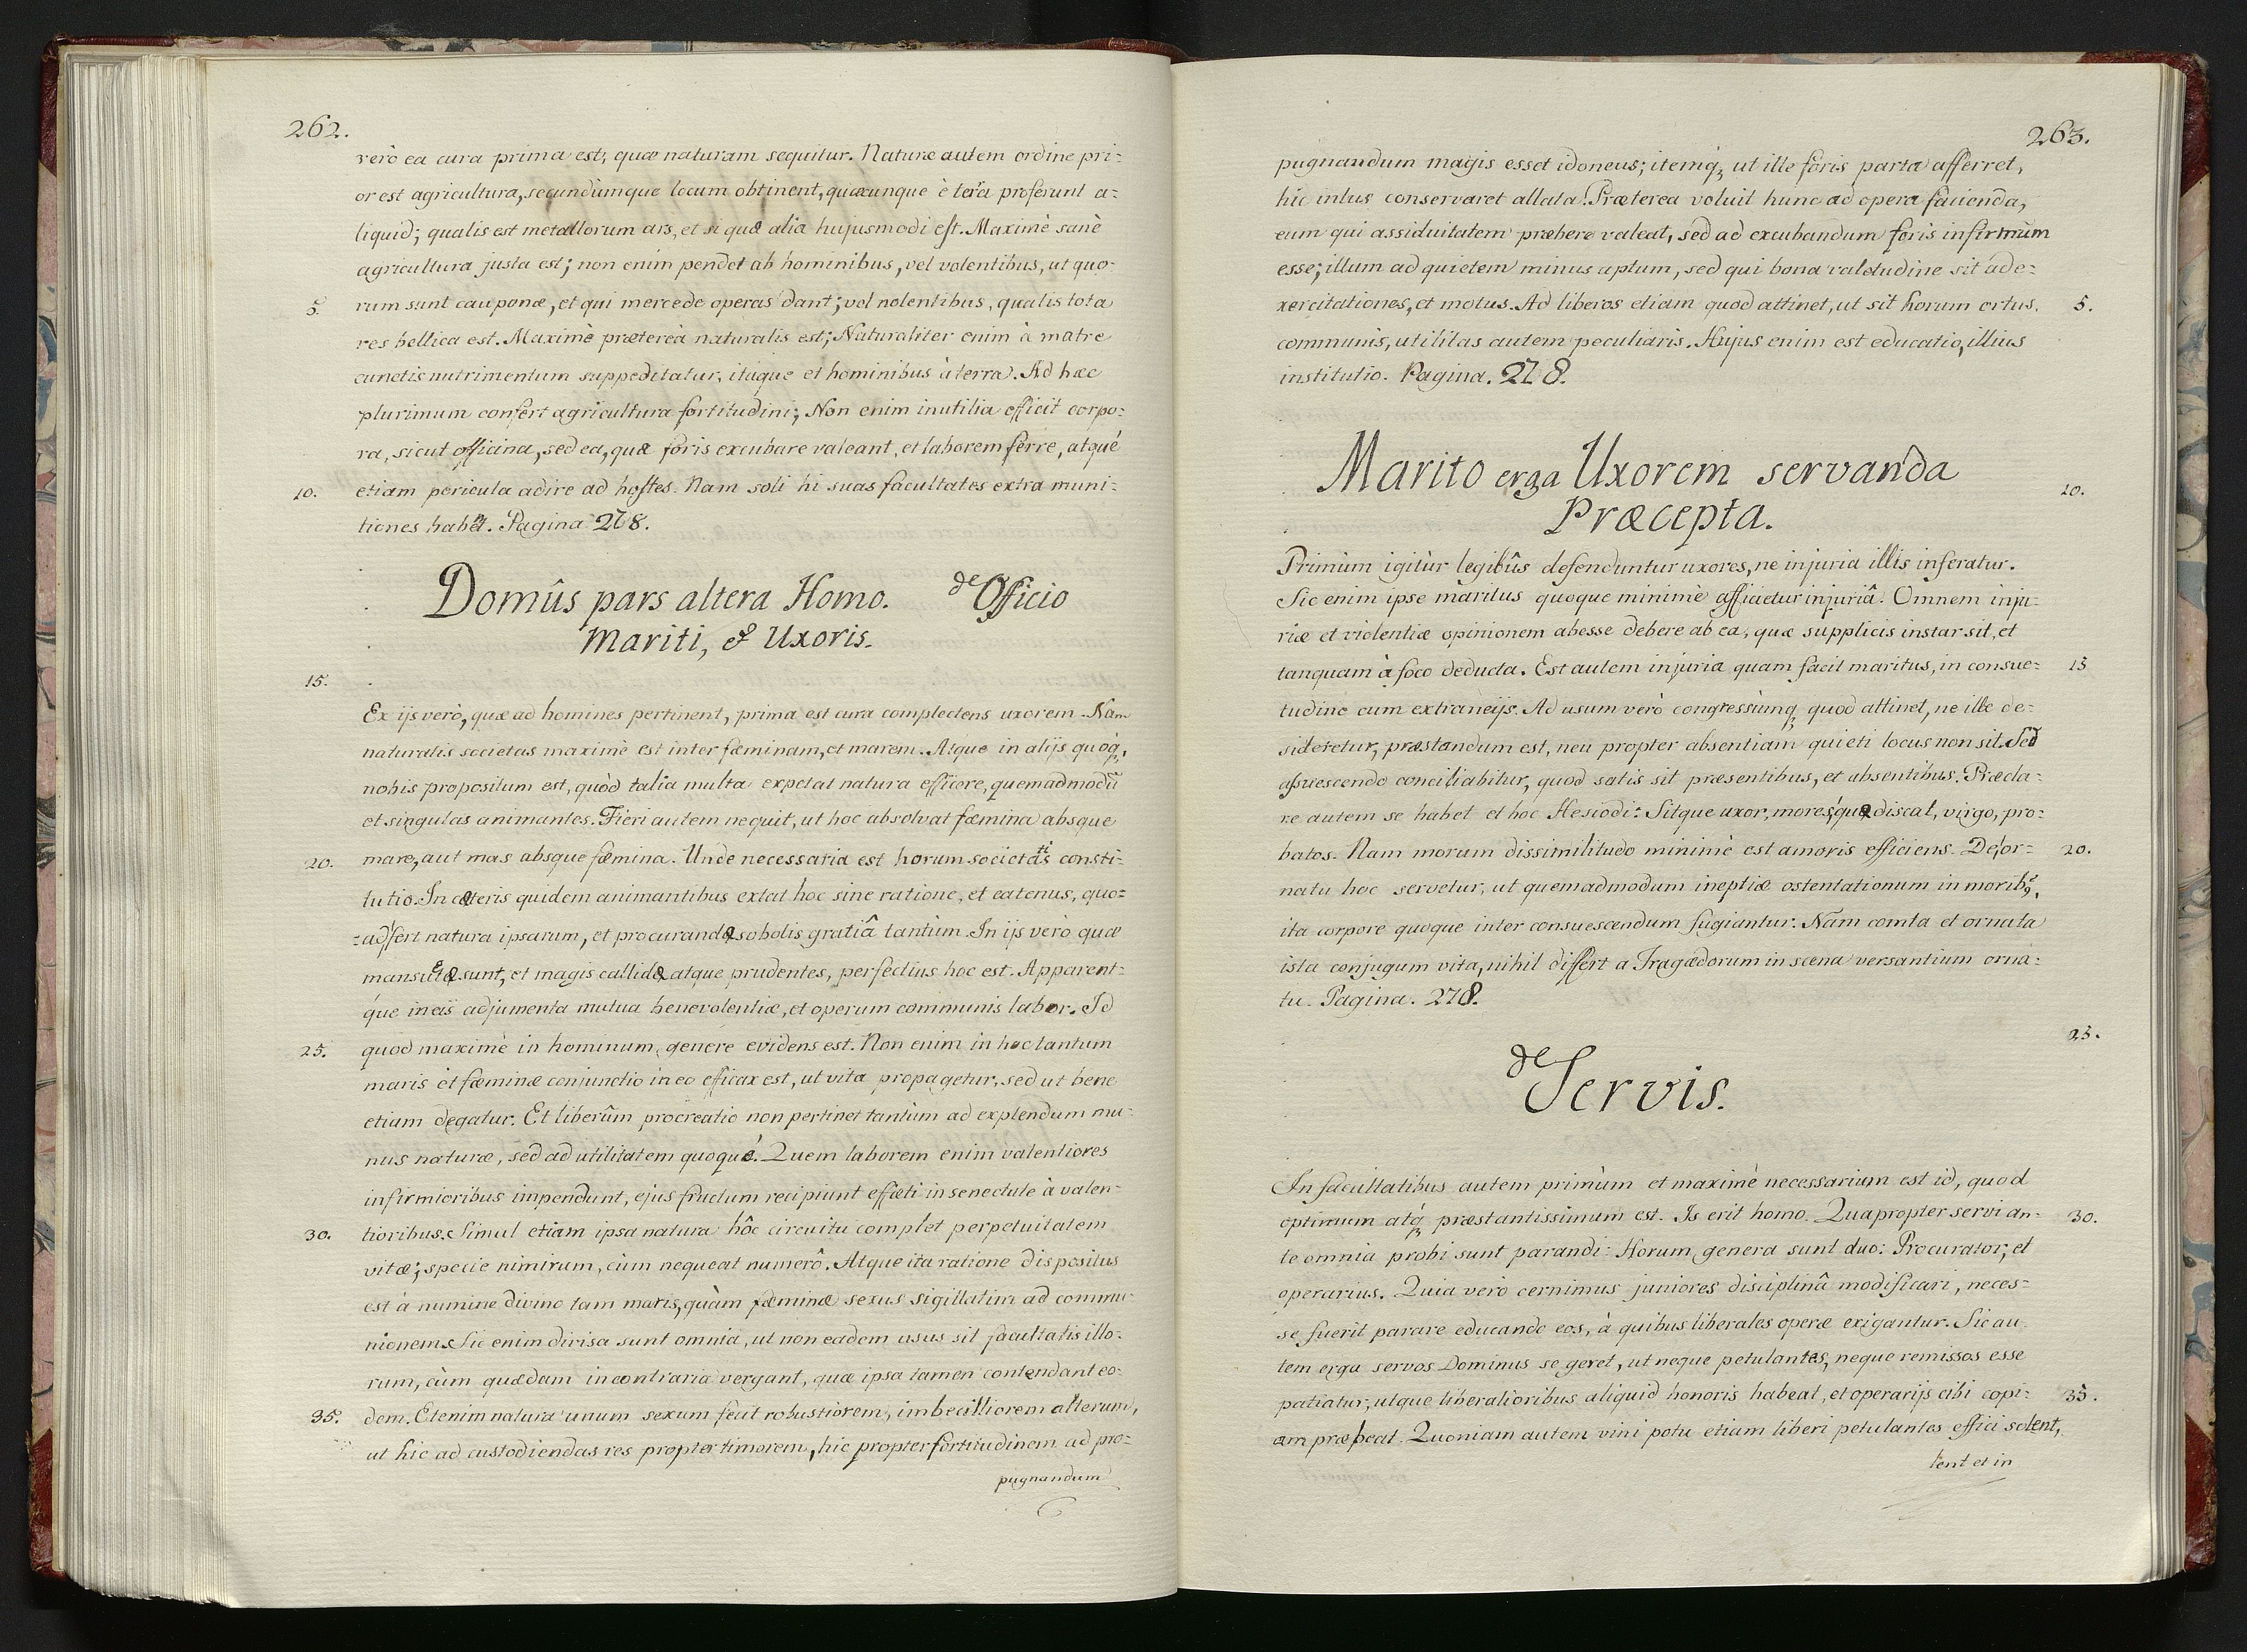 262.
verò ea cura prima est, quæ naturam sequitur. Naturæ autem ordine pri:
or est agricultura, secundùmque locum obtinent, quæcunque è terra proferunt a:
liquid; qualis est metallorum ars, et si quæ alia hujusmodi est. Maximè sanè
agricultura justa est; non enim pendet ab hominibus, vel volentibus, ut quo:
5. rum sunt cauponæ, et qui mercede operas dant; vel nolentibus, qualis tota
res bellica est. Maximè prætereà naturalis est; Naturaliter enim à matre
cunctis nutrimentum suppeditatur, itaque et hominibus à terra. Ad hæc
plurimum confert agricultura fortitudini; Non enim inutilia efficit corpo:
ra, sicut officina, sed ea, quæ foris excubare valeant, et laborem ferre, atqué
10. etiam pericula adire ad hostes. Nam soli hi suas facultates extra muni:
tiones habēt. Pagina 278.
Domûs pars altera Homo. de Officio
Mariti, & Uxoris.
15.
Ex ijs verò, quæ ad homines pertinent, prima est cura complectens uxorem. Nam
naturalis societas maximè est inter fæminam, et marem. Atque in alijs quoq,
nobis propositum est, quòd talia multa expetat natura efficere, quemadmodū
et singulas animantes. Fieri autem nequit, ut hoc absolvat fæmina absque
20. mare, aut mas absque fæmina. Unde necessaria est horum societatis consti:
tutio. In cæteris quidem animantibus extat hoc sine ratione, et eatenus, quo:
:ad fert natura ipsarum, et procurandæ sobolis gratiâ tantùm. In ijs verò quæ
mansuetæ sunt, et magis callidæ atque prudentes, perfectius hoc est. Apparent:
que in eis adjumenta mutua benevolentiæ, et operum communis labor. Id
25. quod maximè in hominum genere evidens est. Non enim in hoc tantum
maris et fæminæ conjunctio in eo efficax est, ut vita propagetur, sed ut bene
etiam degatur. Et liberûm procreatio non pertinet tantùm ad explendum mu:
nus naturæ, sed ad utilitatem quoqué. Quem laborem enim valentiores
infirmioribus impendunt, ejus fructum recipiunt effæti in senectute à valen:
30. tioribus. Simul etiam ipsa natura hôc circuitu complet perpetuitatem
vitæ; specie nimirum, cùm nequeat numerô. Atque ita ratione dispositus
est à numine divino tam maris, quàm fæminæ sexus sigillatim ad commu:
nionem. Sic enim divisa sunt omnia, ut non eadem usus sit facultatis illo:
rum, cùm quædam in contraria vergant, quæ ipsa tamen contendant eo:
35. dem. Etenim natura unum sexum fecit robustiorem, imbecilliorem alterum,
ut hic ad custodiendas res propter timorem, hic propter fortitudinem ad pro:
pugnandum
263.
pugnandum magis esset idoneus; itemq, ut ille foris parta afferret,
hic intus conservaret allata. Præterea voluit hunc ad opera facienda,
eum qui assiduitatem præbere valeat, sed ad excubandum foris infirmum
esse; illum ad quietem minus aptum, sed qui bona valetudine sit ad e:
xercitationes, et motus. Ad liberos etiam quod attinet, ut sit horum ortus 5.
communis, utilitas autem peculiaris. Hujus enim est educatio, illius
institutio. Pagina. 278.
Marito erga Uxorem servanda
10.
Præcepta.
Primùm igitùr legibûs defenduntur uxores, ne injuria illis inferatur.
Sic enim ipse maritus quoque minimè afficietur injuriâ. Omnem inju:
riæ et violentiæ opinionem abesse debere ab ea, quæ supplicis instar sit, et
tanquam à foco deducta. Est autem injuria quam facit maritus, in consue: 15
tudine cum extraneijs. Ad usum verò congressùmq, quod attinet, ne ille de:
sideretur, præstandum est, neu propter absentiam quieti locus non sit. Sed
assuescendo conciliabitur, quod satis sit præsentibus, et absentibus. Præcla:
re autem se habet et hoc Hesiodi: Sitque uxor, mores, quæ discat, virgo, pro:
batos. Nam morum dissimilitudo minimè est amoris efficiens. De, or: 20.
natu hoc servetur, ut quemadmodum ineptiæ ostentationum in morib9,
ita corpore quoque inter consuescendum fugiantur. Nam comta et ornata
ista conjugum vita, nihil differt a Tragædorum in scæna versantium orna:
tu. Pagina. 278.
25.
de Servis.
In facultatibus autem primùm et maximè necessarium est id, quod
optimum atq præstantissimum est. Is erit homo. Quapropter servi an: 30.
te omnia probi sunt parandi: Horum genera sunt duo: Procurator; et
operarius. Quia verò cernimus juniores disciplinâ modificari, neces:
se fuerit parare educando eos, à quibus liberales operæ exigantur. Sic au
tem erga servos Dominus se geret, ut neque petulantes, neque remissos esse
patiatur; utque liberalioribus aliquid honoris habeat, et operarijs cibi copi: 35.
am præbeat. Quoniam autem vini potu etiam liberi petulantes effici solent,
tent et in